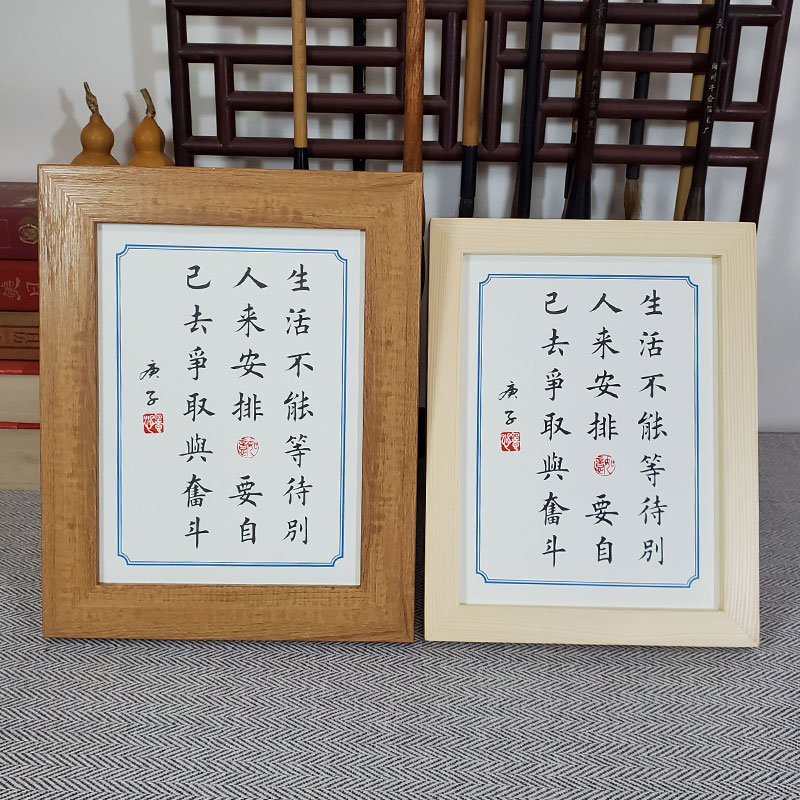 生活不能等待別
人来安排要自
己去爭取與奮斗
庚子
生活不能等待別
人来安排要自
己去爭取與奮斗
庚子